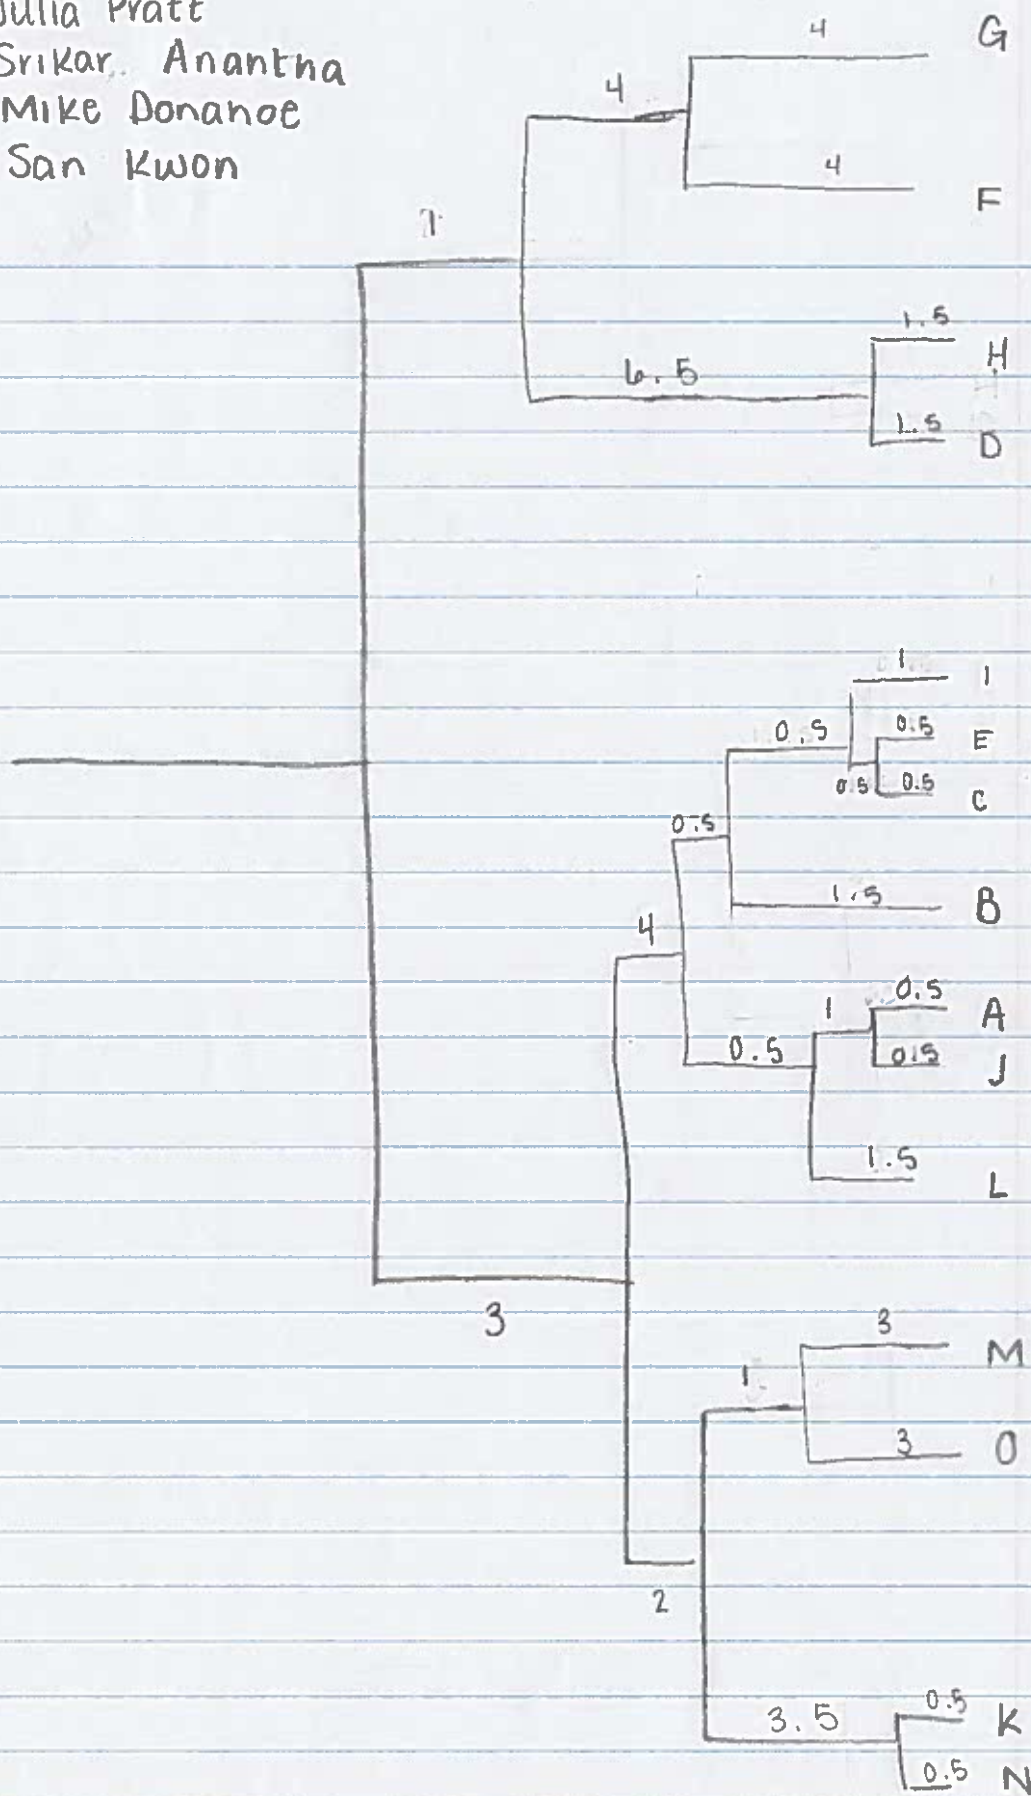 Julia Pratt
Srikar Anantha
Mike Donahoe
San Kwon
4
G
4
4
F
1
1.5
H
6.5
1.5
D
1
I
0.5
0.5
E
0.5
0.5
C
0.5
1.5
B
4
0.5
A
1
0.5
0.5
J
1.5
L
3
3
M
1
3
O
2
0.5
K
3.5
0.5
N